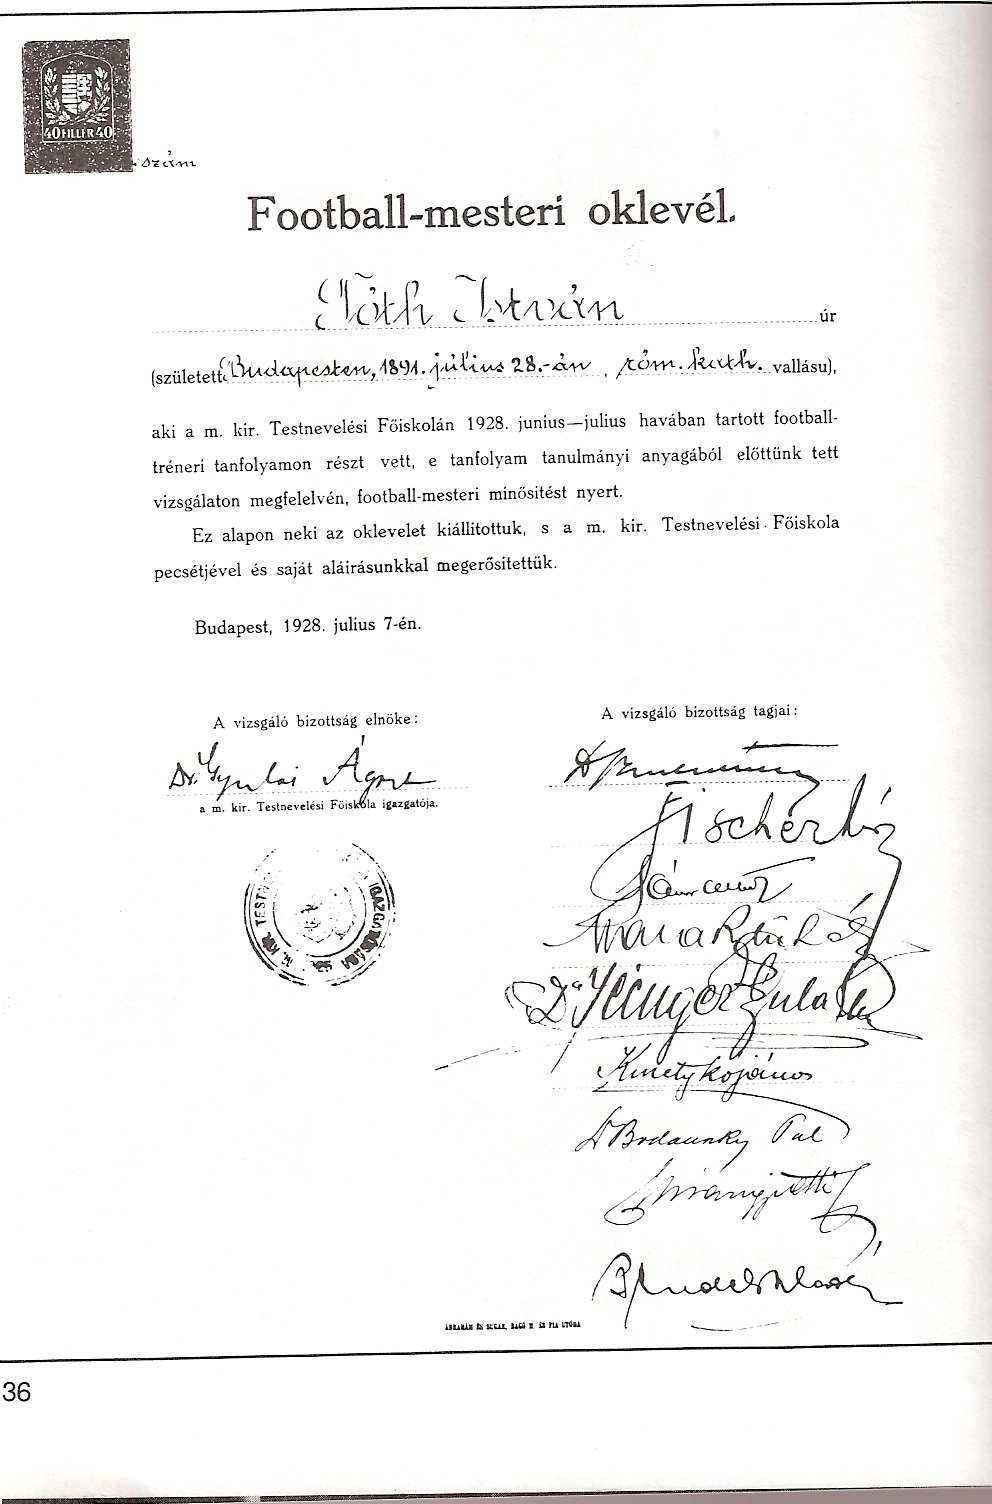 40 FILLÉR 40
szám
Football-mesteri oklevél.
Tóth István úr
(született Budapesten, 1891. július 28.-án, róm. kath. vallásu),
aki a m. kir. Testnevelési Főiskolán 1928. junius—julius havában tartott football-
tréneri tanfolyamon részt vett, e tanfolyam tanulmányi anyagából előttünk tett
vizsgálaton megfelelvén, football-mesteri minősitést nyert.
Ez alapon neki az oklevelet kiállitottuk, s a m. kir. Testnevelési Főiskola
pecsétjével és saját aláirásunkkal megerősitettük.
Budapest, 1928. julius 7-én.
A vizsgáló bizottság elnöke:
Dr. Gyulai Ágost
a m. kir. Testnevelési Főiskola igazgatója.
M. KIR. TESTNEV IGAZGATÓSÁGA
A vizsgáló bizottság tagjai:
Dr
Fischer
Dr
Kmetykó János
Dr Bodánszky Pál
ÁBRAHÁM ÉS SUGÁR, BAGÓ M. ÉS FIA UTÓDA
36